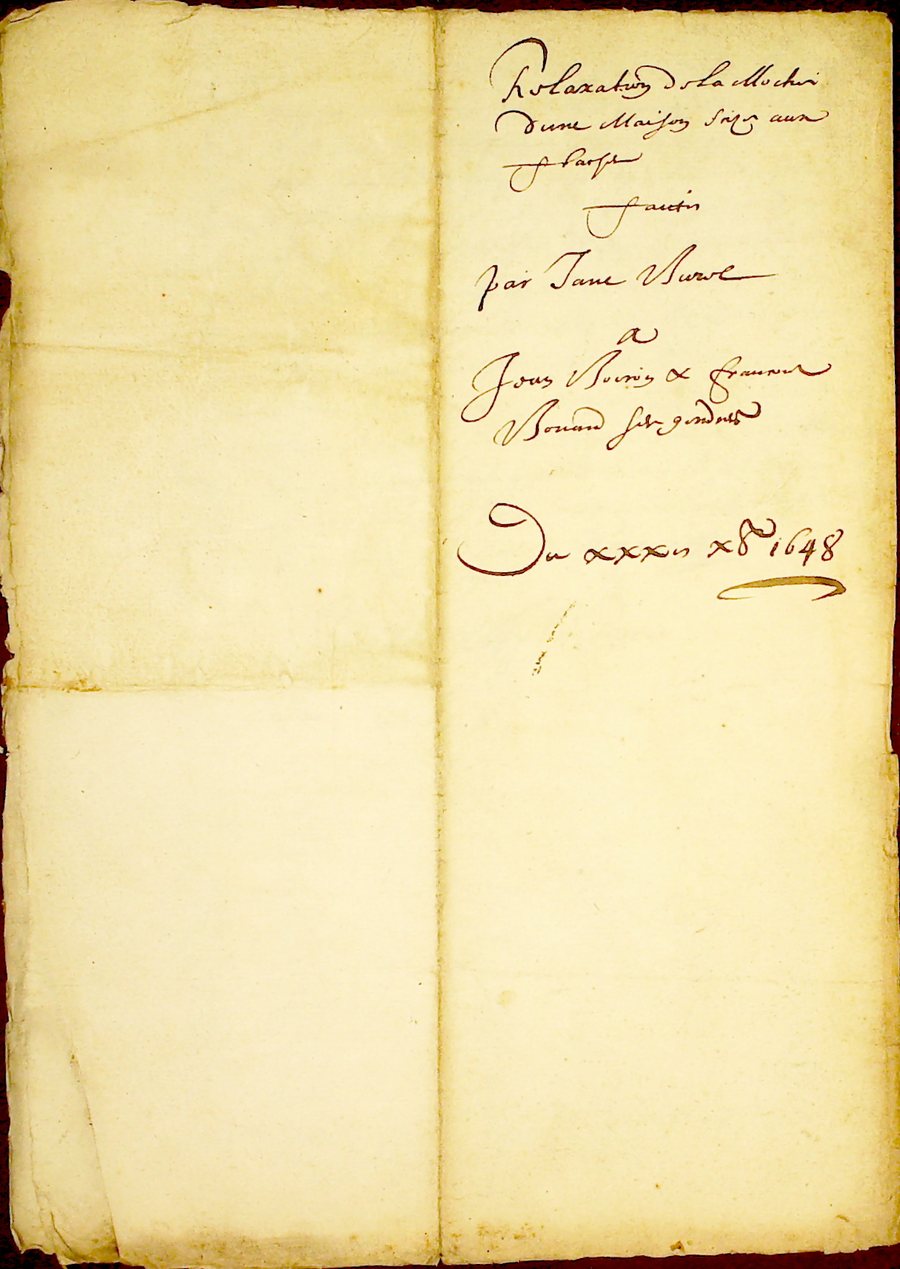 Relaxation de la Moctié
dune Maison size aux
faicte
par Jane Burol
a
Jean Boiron & francois
Bouard ses gendres
Du xxxes x8re 1648